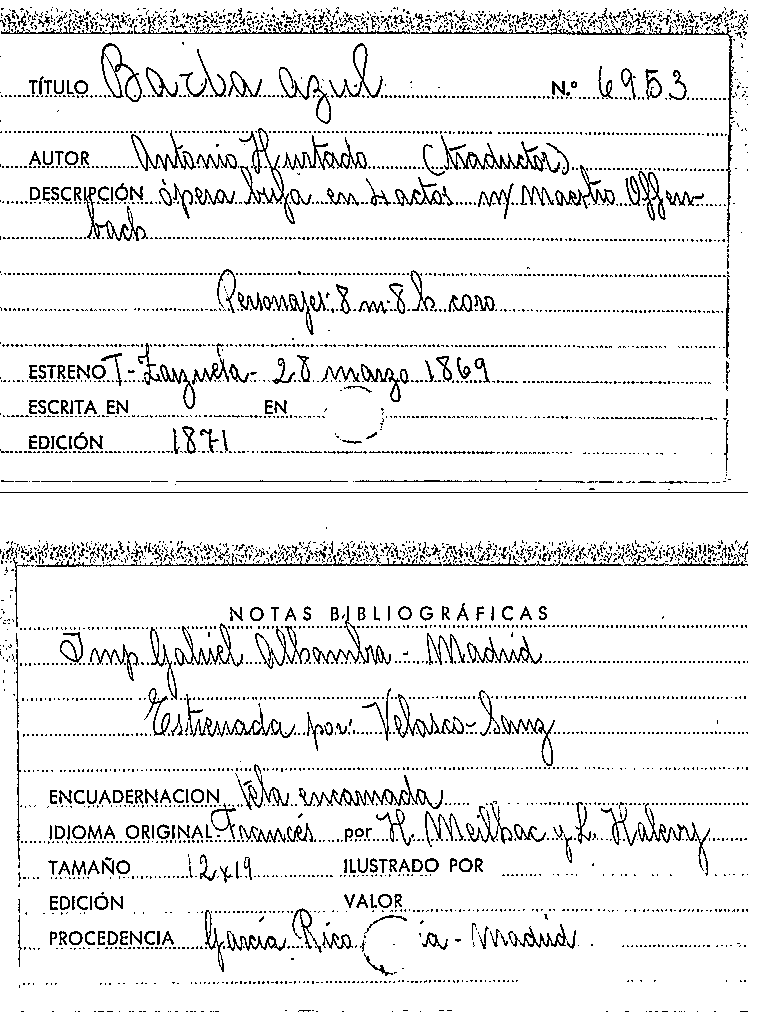 TÍTULO Barba azul N.º 6953
AUTOR Antonio Hurtado (traductor)
DESCRIPCIÓN ópera bufa en 4 actos m/ maestro Offen-
bach
Personajes: 8 m. 8 h coro
ESTRENO T-Zarzuela - 28 marzo 1869
ESCRITA EN EN
EDICIÓN 1871
NOTAS BIBLIOGRÁFICAS
Imp Gabriel Alhambra - Madrid
Estrenada por: Velasco-Sanz
ENCUADERNACION tela encarnada
IDIOMA ORIGINAL Francés por H. Meilhac y L. Halevy
TAMAÑO 12x19 ILUSTRADO POR
EDICIÓN VALOR
PROCEDENCIA García Rico ia - Madrid